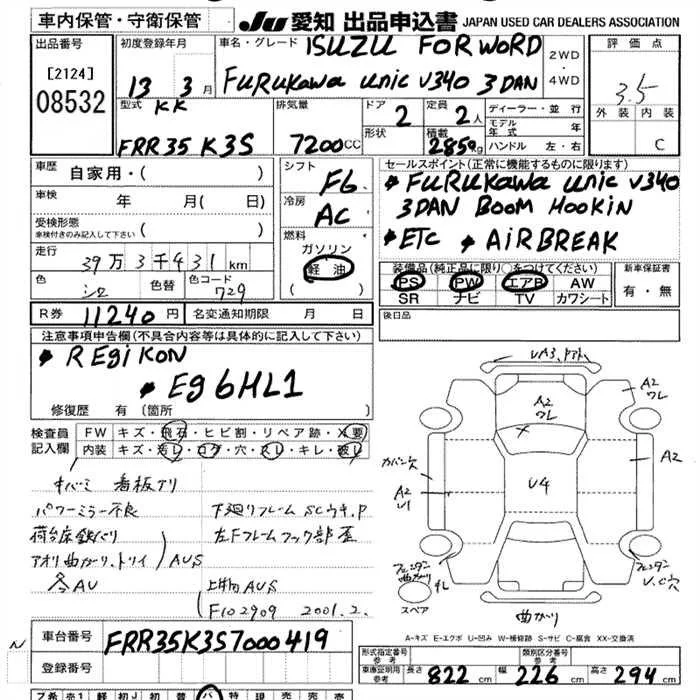 車内保管・守衛保管
JU 愛知 出品申込書 JAPAN USED CAR DEALERS ASSOCIATION
出品番号
[2124]
08532
初度登録年月
13 3月
車名・グレード
ISUZU FORWORD
FURUKAWA UNIC V340 3DAN
2WD
・
4WD
評価点
3.5
外装 内装
C
型式 KK
FRR35 K3S
排気量
7200CC
ドア 2
形状
定員 2人
積載
2850kg
ディーラー・並行
モデル年式 年
ハンドル 左・右
車歴 自家用・( )
車検 年 月( 日)
受検形態
車検付きのみ記入して下さい ( )
走行
39万3千431km
色 シロ
色替
色コード 729
シフト F6
冷房 AC
燃料
ガソリン
軽油
( )
セールスポイント(正常に機能するものに限ります)
FURUKAWA UNIC V340
3DAN BOOM HOOKIN
ETC AIRBREAK
装備品(純正品に限り○をつけてください)
PS PW エアB AW
SR ナビ TV カワシート
新車保証書
有・無
R券 11240円 名変通知期限 月 日
後日品
注意事項申告欄(不具合内容等は具体的に記入して下さい)
REGIKON
EG6HL1
修復歴 有(箇所 )
検査員
記入欄
FW キズ・飛石・ヒビ割・リペア跡・X要
内装 キズ・汚レ・コゲ・穴・スレ・キレ・破レ
看板アリ
パワーミラー不良
荷台床鉄バリ
アオリ曲がり、トリイ AUS
AU
下廻リフレームSCウキ、P
左Fフレームフック部歪
AUS
F102909 2001.2.
VA3、アト
A2
ワレ
A2
ワレ
カバン穴
A2
U1
U4
A2
フェンダー
曲がり
キレ
スペア
フェンダー
U.C穴
曲がり
A-キズ E-エクボ U-凹み W-補修跡 S-サビ C-腐食 XX-交換済
車台番号 FRR35K3S7000419
登録番号
N
形式指定番号
参考
類別区分番号
参考
車庫証明用
参考
長さ 822 cm 幅 226 cm 高さ 294 cm